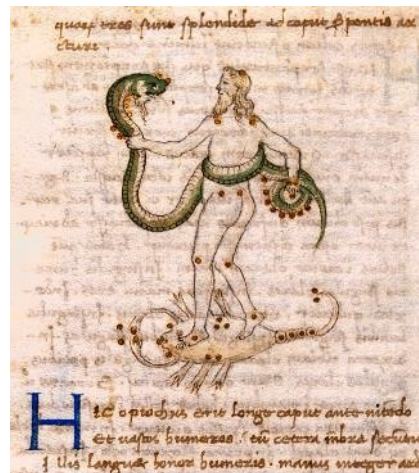 quoꝝ tres sunt splendide ad caput serpentis
cture.
Hic opiochus erit longe caput ante nitendo
Et uastos humeros. tũ cetera mẽbra secũtur
Illis languet honor humeris. manus